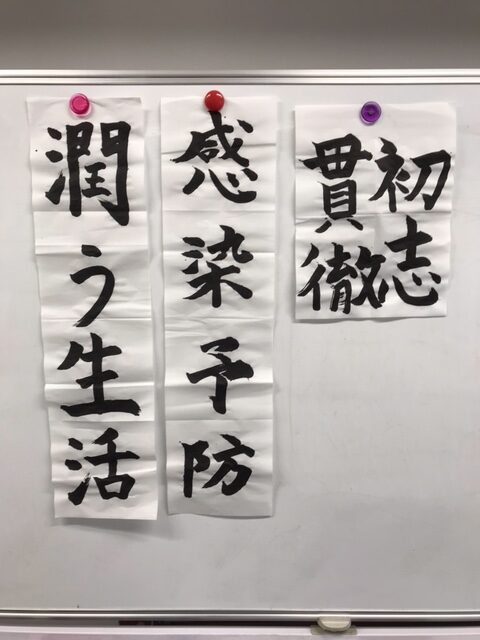 初志
貫徹
感染予防
潤う生活